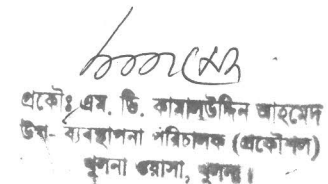 প্রকৌঃ এম. ডি. কামালউদ্দিন আহমেদ
উপ- ব্যবস্থাপনা পরিচালক (প্রকৌশল)
খুলনা ওয়াসা, খুলনা।